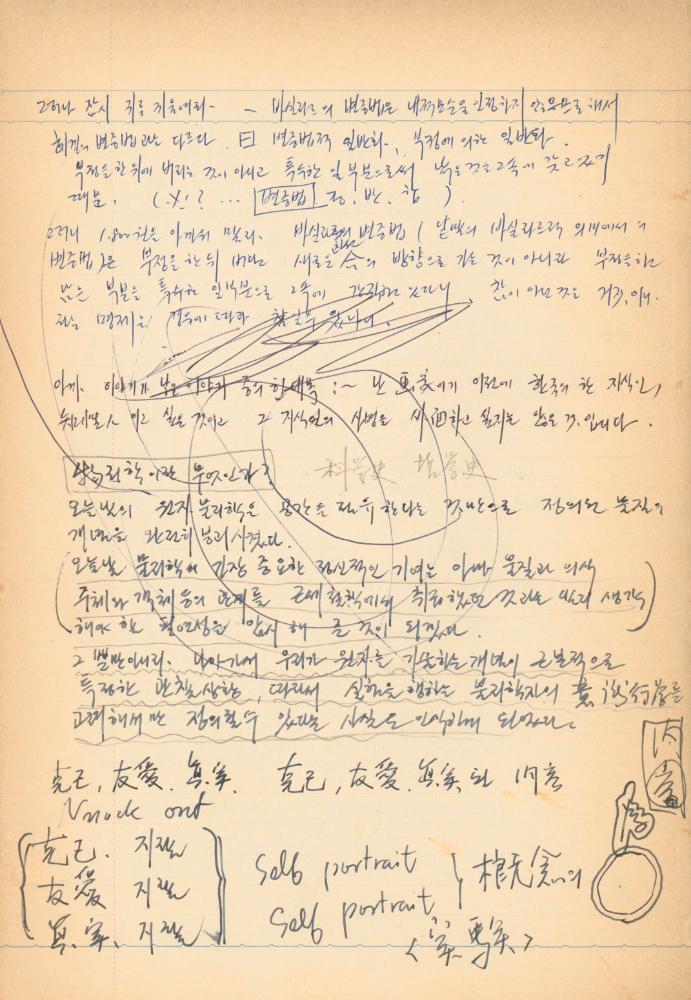 그러나 잠시 지루 지움여라. — 바실라르의 변증법은 내적모순을 인정하지 않음으로 해서
헤겔의 변증법과는 다르다. 日 변증법적 일반화, 부정에 의한 일반화.
부정을 한 뒤에 버리는 것이 아니고 특수한 일부분으로써 낡은 것을 그속에 갖고 있기
때문. (.×!? ... 변증법 정, 반, 합 ).
그러니 1.800원을 아껴서 바실라르의 변증법 ( 의 바실라르적 의미에서의
변증법 )은 부정을 한 뒤 버리고 새로운 슴의 방향으로 가는 것이 아니라 부정을 하고
남은 부분을 특수한 일부분으로 그속에 간직하고 있다니, 참이 아닌 것은 거짓, 아니
라는 명제는 경우에 따라 참일수 있나니.
아까. 이야기가 낳은 이야기 중의 한대목 : ~ 난 画家이기 이전에 한국의 한 지식인,
이고 싶은 것이고 그 지식인의 사명을 外面하고 싶지는 않은 것. 입니다.
物리학이란 무엇인가? 科学史 哲学史
오늘날의 원자물리학은 공간을 점유한다는 것만으로 정의된 물질의
개념을 완전히 붕괴시켰다.
오늘날 물리학의 가장 중요한 정신적인 기여는 아마 물질과 의식
주체와 객체 등의 관계를 근세철학에서 취급했던 것과는 달리 생각
해야 할 필연성을 암시해 준 것이 되겠다.
그 뿐만아니라. 나아가서 우리가 원자를 기술하는 개념이 근본적으로
특정한 관찰상황, 따라서 실험을 행하는 물리학자의 意識行爲를
고려해서만 정의될수 있다는 사실도 인식하게 되었다.
克己, 友愛, 眞実. 克己, 友愛, 眞実된 内意
内室
Knock out
克己. 지랄
友愛 지랄
眞.実. 지랄
Self portrait
Self portrait
棺元念의
<実験>